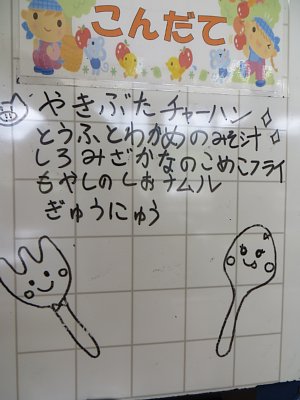 こんだて
やきぶたチャーハン
とうふとわかめのみそ汁
しろみざかなのこめこフライ
もやしのしおナムル
ぎゅうにゅう